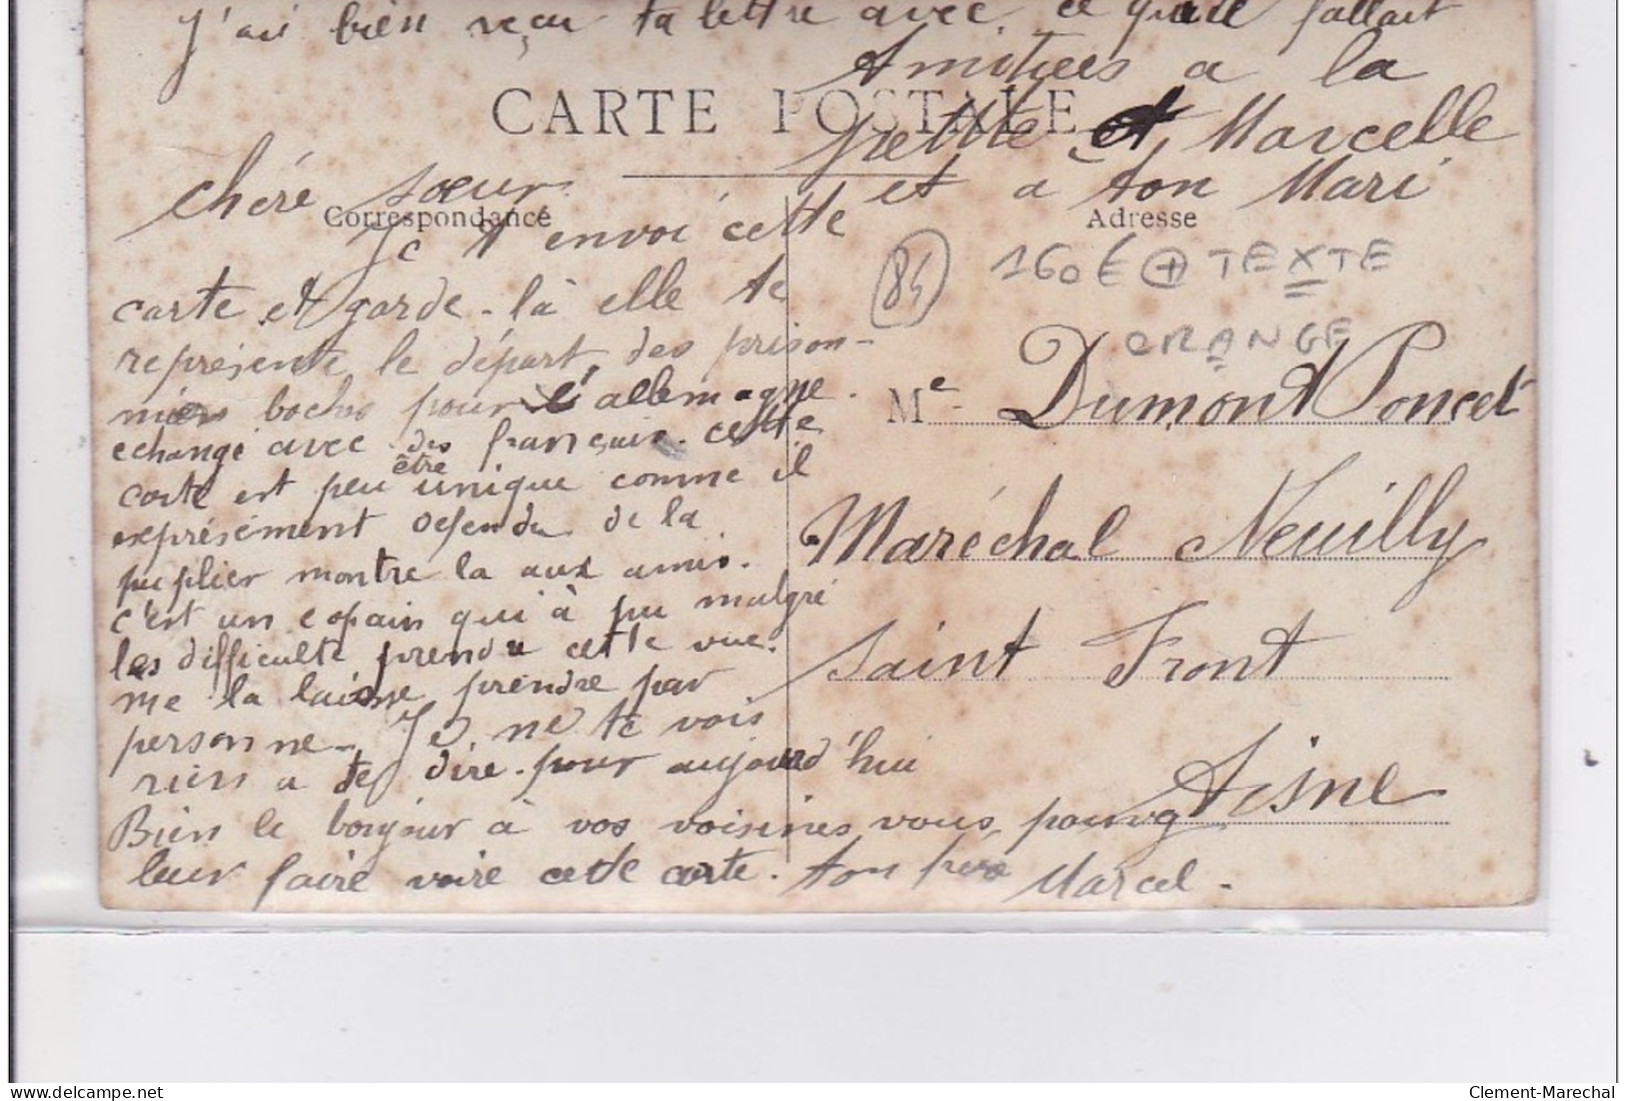 J'ai bien reçu ta lettre avec ce qu'il fallait
Amitiees a la
CARTE POSTALE
et Marcelle
et a ton Mari
chére sœur
Correspondance
Adresse
Je t'envoi cette
carte et garde-là elle te
représente le départ des prison-
niers boches pour l'allemagne
echangé avec des français. cette
carte est peu être unique comme il
expresément defendu de la
puplier montre la aux amis.
c'est un copain qui à pu malgré
les difficulté prendre cette vue.
me la laisse prendre par
personne - Je ne te vois
riens a te dire pour aujourd'hui
Bien le bonjour à vos voisines vous pouvez
leur faire voire cette carte. ton frère Marcel.
84
160 € + TEXTE
ORANGE
Me Dumont Poncet
Maréchal Neuilly
Saint Front
Aisne
delcampe.net
Clement-Marechal